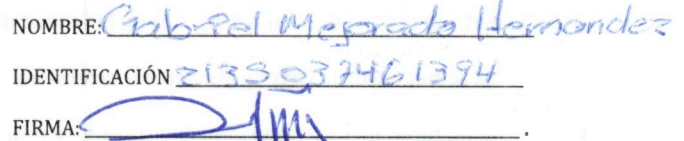 NOMBRE: Gabriel Mejorada Hernandez
IDENTIFICACIÓN 2135037461394
FIRMA: